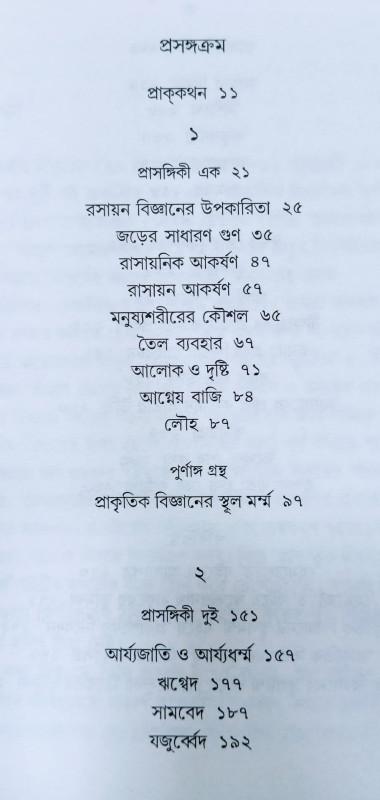 প্রসঙ্গক্রম
প্রাক্‌কথন ১১
১
প্রাসঙ্গিকী এক ২১
রসায়ন বিজ্ঞানের উপকারিতা ২৫
জড়ের সাধারণ গুণ ৩৫
রাসায়নিক আকর্ষণ ৪৭
রাসায়ন আকর্ষণ ৫৭
মনুষ্যশরীরের কৌশল ৬৫
তৈল ব্যবহার ৬৭
আলোক ও দৃষ্টি ৭১
আগ্নেয় বাজি ৮৪
লৌহ ৮৭
পুর্ণাঙ্গ গ্রন্থ
প্রাকৃতিক বিজ্ঞানের স্থূল মর্ম্ম ৯৭
২
প্রাসঙ্গিকী দুই ১৫১
আর্য্যজাতি ও আর্য্যধর্ম্ম ১৫৭
ঋগ্বেদ ১৭৭
সামবেদ ১৮৭
যজুর্ব্বেদ ১৯২